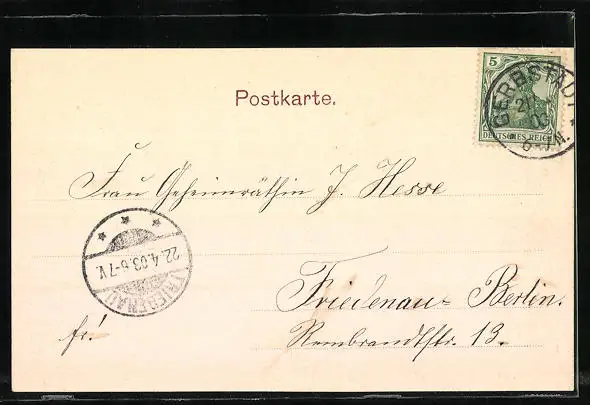 Postkarte.
5
DEUTSCHES REICH
GERBSTADT
21
03
6-7 N.
Frau Geheimräthin J. Hesse
22.4.03.6-7V.
FRIEDENAU
Friedenau-Berlin.
Rembrandtstr. 13.
fr!